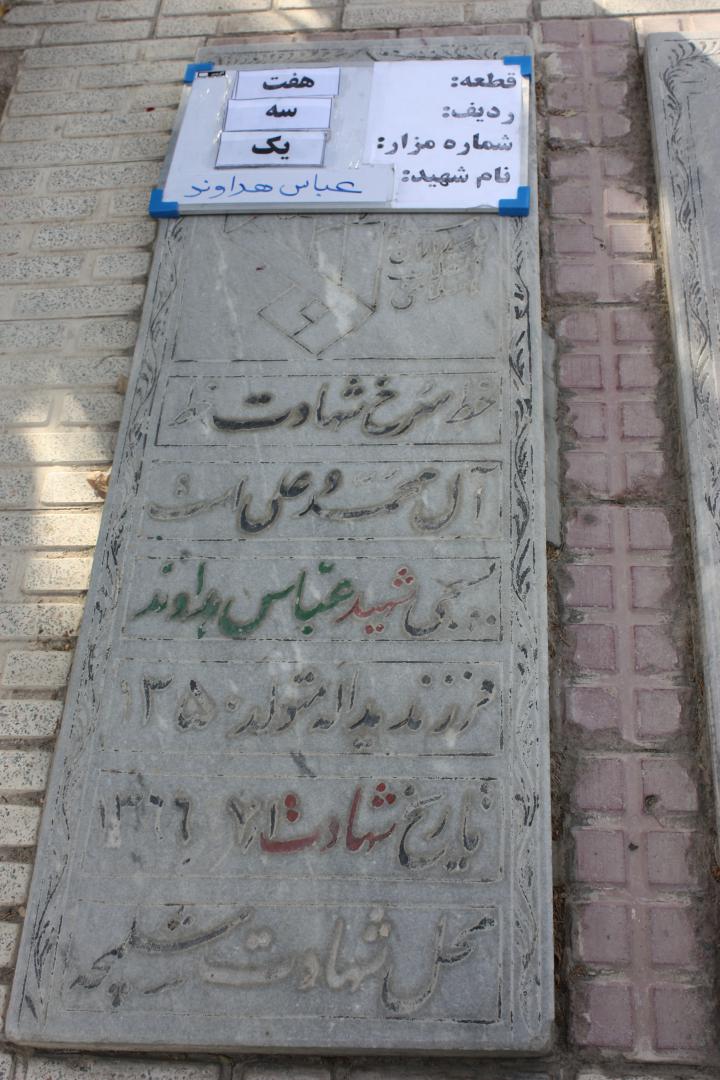 قطعه: هفت
ردیف: سه
شماره مزار: یک
نام شهید: عباس هداوند
خط سرخ شهادت خط
آل محمد و علی است
بسیجی شهید عباس هداوند
فرزند یداله متولد ۱۳۵۰
تاریخ شهادت ۱۳۶۶
محل شهادت شلمچه